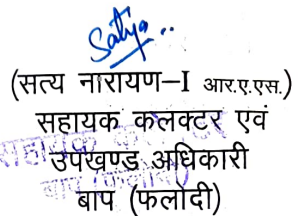 Satya..
(सत्य नारायण–I आर.ए.एस.)
सहायक कलक्टर एवं
उपखण्ड अधिकारी
बाप (फलोदी)